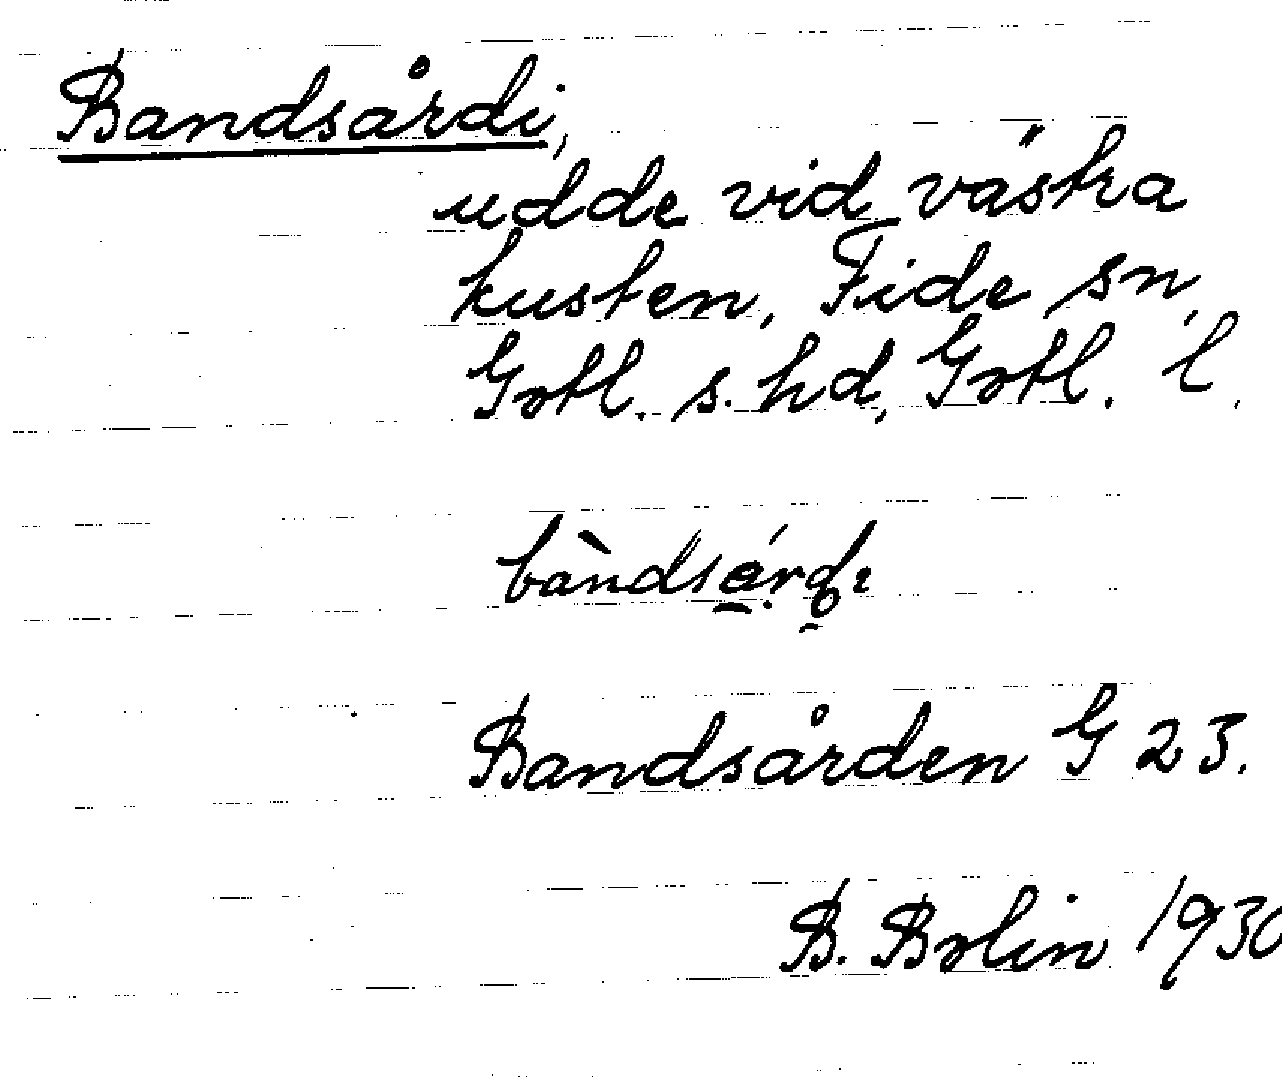 Bandsårdi,
udde vid västra
kusten, Fide sn,
Gotl. s. hd, Gotl. l.
Bandsården G 23.
B. Bolin 1930